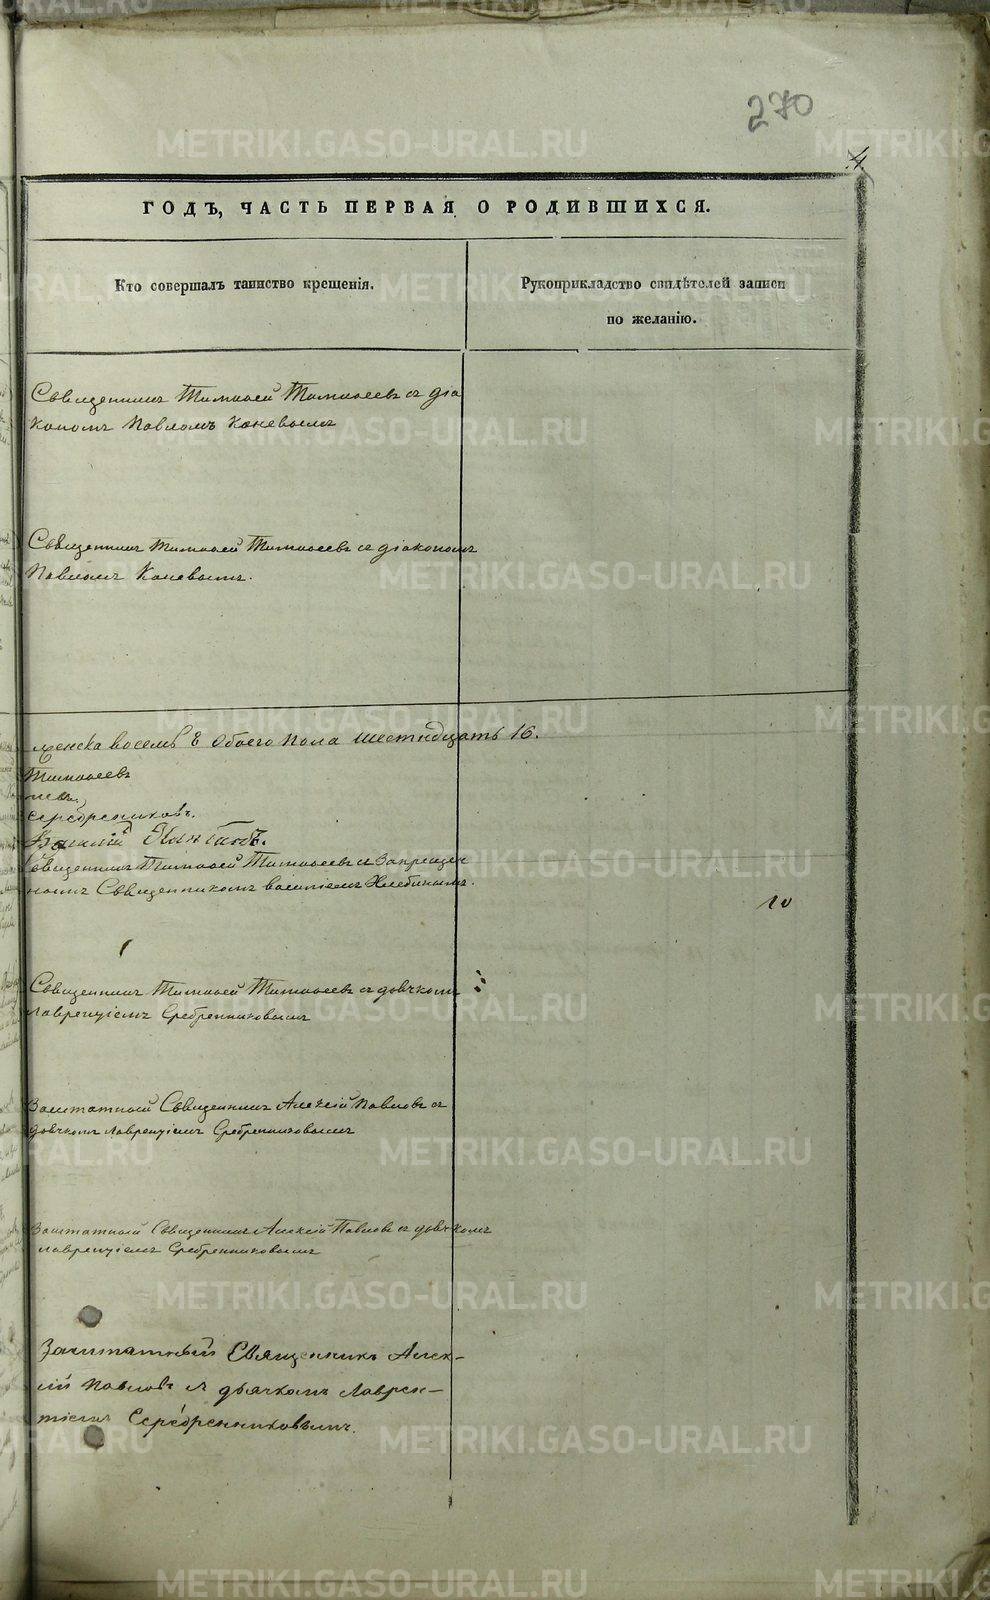 270
4.
ГОДЪ, ЧАСТЬ ПЕРВАЯ О РОДИВШИХСЯ.
Кто совершалъ таинство крещенія.
Рукоприкладство свидѣтелей записи
по желанію.
Священникъ Тимоѳей Тимоѳеевъ съ діа
кономъ Павломъ Каневымъ
Священникъ Тимоѳей Тимоѳеевъ съ діакономъ
Павломъ Каневымъ.
женска восемь 8 обоего пола шестнадцать 16.
Тимоѳеевъ
Серебрениковъ.
Священникъ Тимоѳей Тимоѳеевъ съ Запрещен
нымъ Священникомъ Василіемъ Хлебинымъ.
10
Священникъ Тимоѳей Тимоѳеевъ съ дьячкомъ
Лаврентіемъ Сребренниковымъ
Заштатной Священникъ Алексій Павловъ съ
дьячкомъ Лаврентіемъ Сребренниковымъ
Заштатной Священникъ Алексій Павловъ съ дьячкомъ
Лаврентіемъ Сребренниковымъ
Заштатный Священникъ Алек-
сій Павловъ съ дьячкомъ Лаврен-
тіемъ Серебренниковымъ.
METRIKI.GASO-URAL.RU